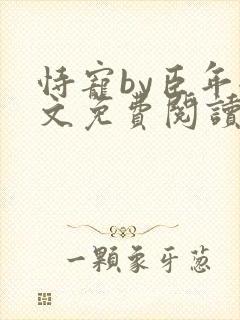 恃寵by臣年
文免費閱讀
一顆象牙蔥